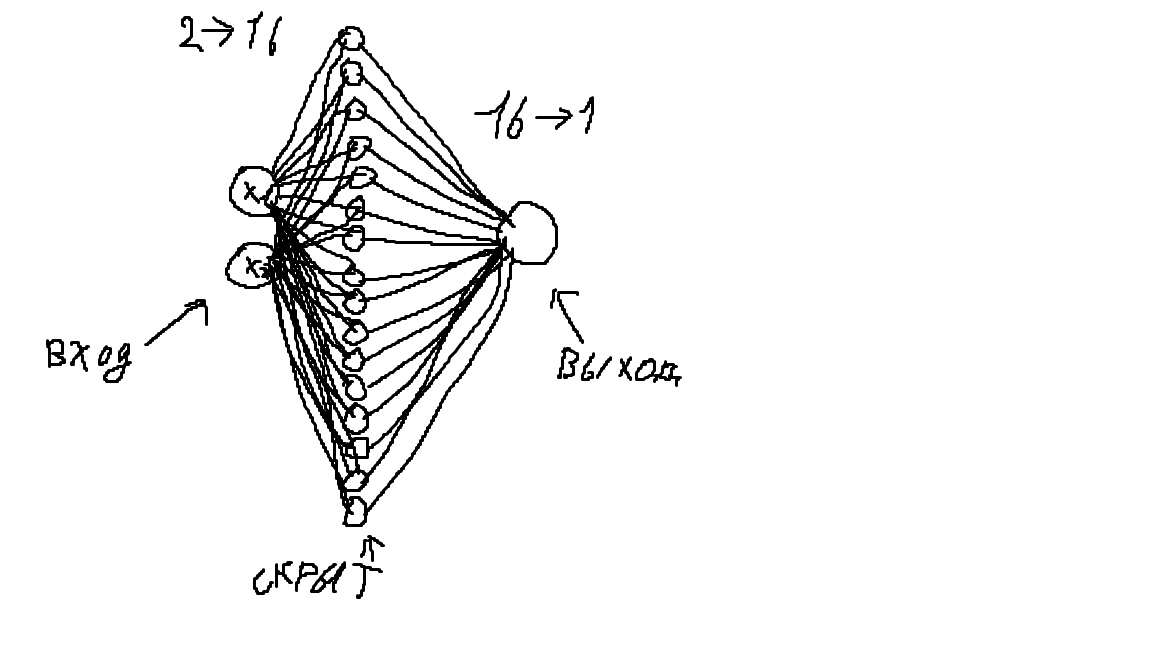 2→16
16→1
x
x2
вход
выход
скрыт